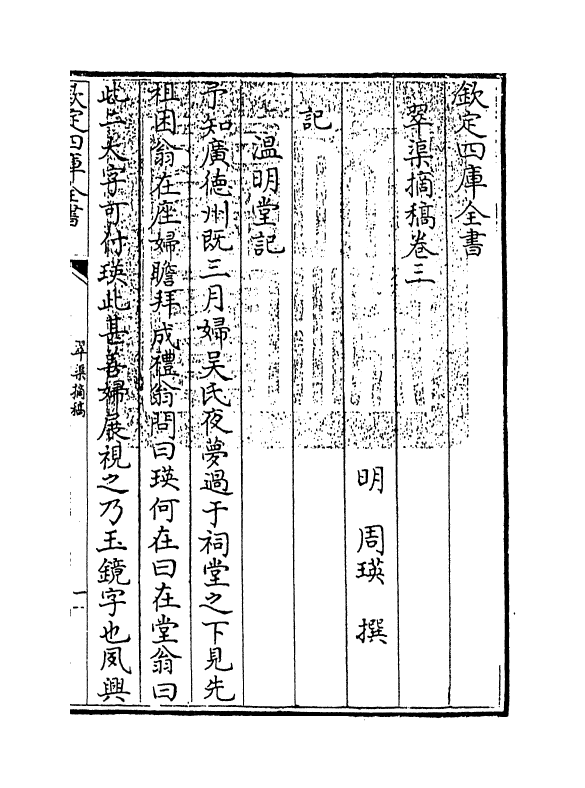 欽定四庫全書
翠渠摘稿卷三
明 周瑛 撰
記
温明堂記
予知廣德州既三月婦吴氏夜夢過于祠堂之下見先
祖困翁在座婦瞻拜成禮翁問曰瑛何在曰在堂翁曰
此二大字可付瑛此甚善婦展視之乃玉鏡字也夙興
欽定四庫全書
翠渠摘稿
一